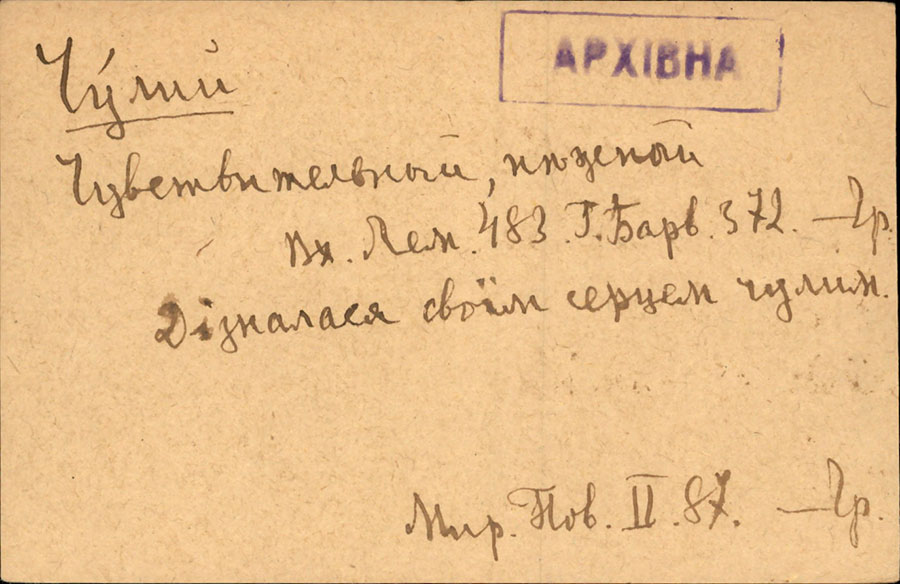 АРХІВНА
Чу́лий
Чувствительный, нѣжный
Вх. Лем. 483. Г. Барв. 372. — Гр.
Дізналася своїм серцем чулим.
Мир. Пов. II. 87. — Гр.